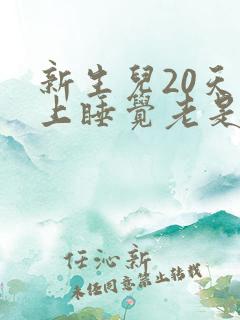 新生兒20天
上睡覺老是
任沁新
未经同意禁止转载